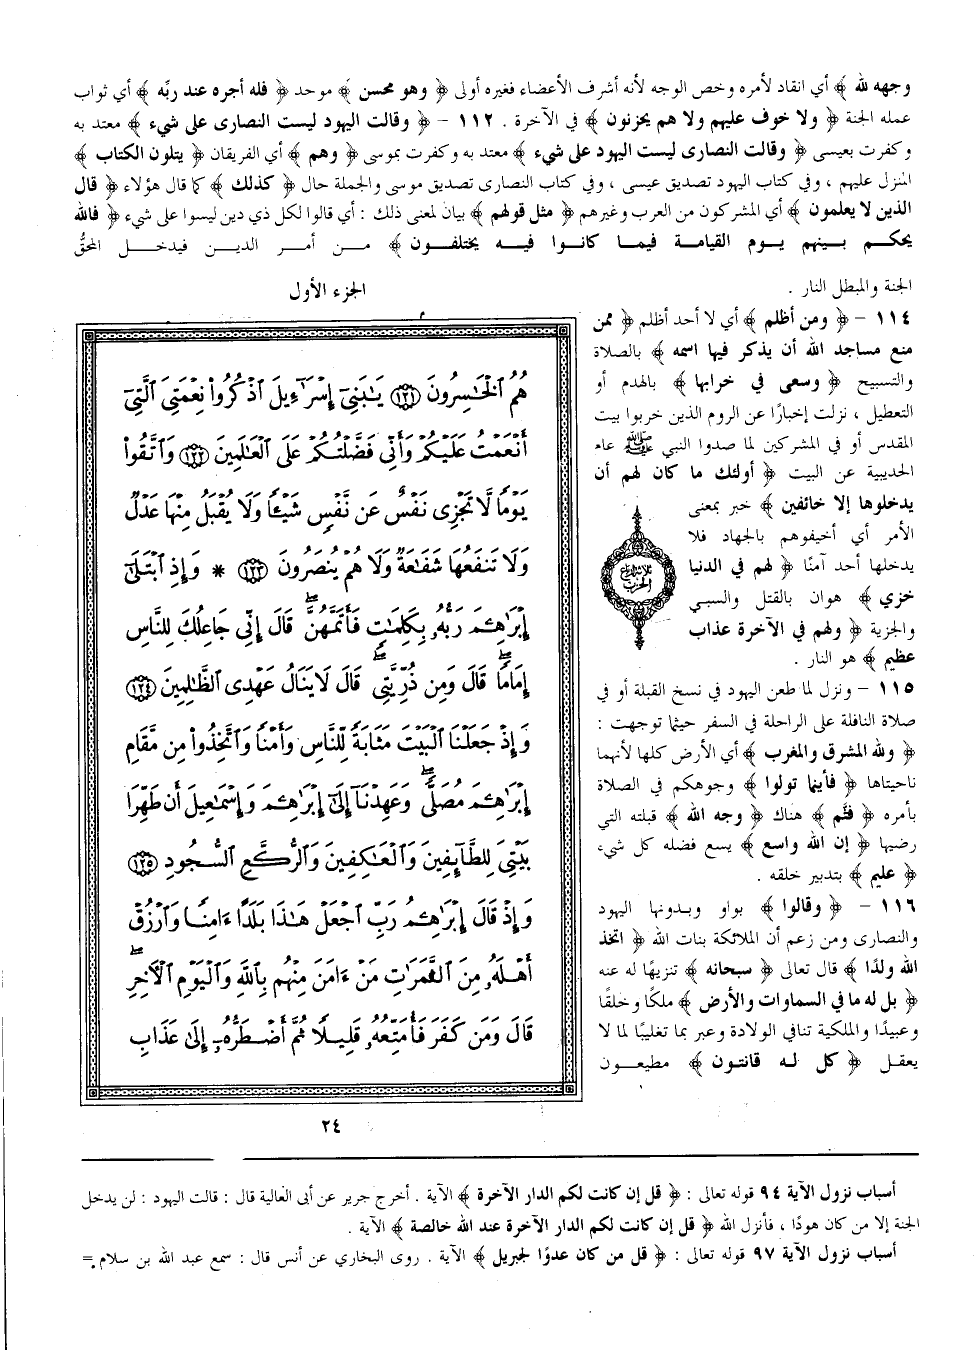 وجهه لله ﴾ أي انقاد لأمره وخص الوجه لأنه أشرف الأعضاء فغيره أولى ﴿ وهو محسن ﴾ موحد ﴿ فله أجره عند ربّه ﴾ أي ثواب
عمله الجنة ﴿ ولا خوف عليهم ولا هم يحزنون ﴾ في الآخرة . ١١٢ - ﴿ وقالت اليهود ليست النصارى على شيء ﴾ معتد به
وكفرت بعيسى ﴿ وقالت النصارى ليست اليهود على شيء ﴾ معتد به وكفرت بموسى ﴿ وهم ﴾ أي الفريقان ﴿ يتلون الكتاب ﴾
المنزل عليهم ، وفي كتاب اليهود تصديق عيسى ، وفي كتاب النصارى تصديق موسى والجملة حال ﴿ كذلك ﴾ كما قال هؤلاء ﴿ قال
الذين لا يعلمون ﴾ أي المشركون من العرب وغيرهم ﴿ مثل قولهم ﴾ بيان لمعنى ذلك : أي قالوا لكل ذي دين ليسوا على شيء ﴿ فالله
يحكم بينهم يوم القيامة فيما كانوا فيه يختلفون ﴾ من أمر الدين فيدخل المحقُّ
الجنة والمبطل النار .
الجزء الأول
١١٤ - ﴿ ومن أظلم ﴾ أي لا أحد أظلم ﴿ ممن
منع مساجد الله أن يذكر فيها اسمه ﴾ بالصلاة
والتسبيح ﴿ وسعى في خرابها ﴾ بالهدم أو
التعطيل ، نزلت إخبارًا عن الروم الذين خربوا بيت
المقدس أو في المشركين لما صدوا النبي ﷺ عام
الحديبية عن البيت ﴿ أولئك ما كان لهم أن
يدخلوها إلا خائفين ﴾ خبر بمعنى
الأمر أي أخيفوهم بالجهاد فلا
يدخلها أحد آمنًا ﴿ لهم في الدنيا
خزي ﴾ هوان بالقتل والسبي
والجزية ﴿ ولهم في الآخرة عذاب
عظيم ﴾ هو النار .
١١٥ - ونزل لما طعن اليهود في نسخ القبلة أو في
صلاة النافلة على الراحلة في السفر حيثما توجهت :
﴿ ولله المشرق والمغرب ﴾ أي الأرض كلها لأنهما
ناحيتاها ﴿ فأينما تولوا ﴾ وجوهكم في الصلاة
بأمره ﴿ فثَم ﴾ هناك ﴿ وجه الله ﴾ قبلته التي
رضيها ﴿ إن الله واسع ﴾ يسع فضله كل شيء
﴿ عليم ﴾ بتدبير خلقه .
١١٦ - ﴿ وقالوا ﴾ بواو وبدونها اليهود
والنصارى ومن زعم أن الملائكة بنات الله ﴿ اتخذ
الله ولدًا ﴾ قال تعالى ﴿ سبحانه ﴾ تنزيهًا له عنه
﴿ بل له ما في السماوات والأرض ﴾ ملكًا وخلقًا
وعبيدًا والملكية تنافي الولادة وعبر بما تغليبًا لما لا
يعقل ﴿ كل له قانتون ﴾ مطيعون
هُمُ ٱلْخَٰسِرُونَ ١٢١ يَٰبَنِىٓ إِسْرَٰٓءِيلَ ٱذْكُرُوا۟ نِعْمَتِىَ ٱلَّتِىٓ
أَنْعَمْتُ عَلَيْكُمْ وَأَنِّى فَضَّلْتُكُمْ عَلَى ٱلْعَٰلَمِينَ ١٢٢ وَٱتَّقُوا۟
يَوْمًا لَّا تَجْزِى نَفْسٌ عَن نَّفْسٍ شَيْـًٔا وَلَا يُقْبَلُ مِنْهَا عَدْلٌ
وَلَا تَنفَعُهَا شَفَٰعَةٌ وَلَا هُمْ يُنصَرُونَ ١٢٣ * وَإِذِ ٱبْتَلَىٰٓ
إِبْرَٰهِـۧمَ رَبُّهُۥ بِكَلِمَٰتٍ فَأَتَمَّهُنَّ ۖ قَالَ إِنِّى جَاعِلُكَ لِلنَّاسِ
إِمَامًا ۖ قَالَ وَمِن ذُرِّيَّتِى ۖ قَالَ لَا يَنَالُ عَهْدِى ٱلظَّٰلِمِينَ ١٢٤
وَإِذْ جَعَلْنَا ٱلْبَيْتَ مَثَابَةً لِّلنَّاسِ وَأَمْنًا وَٱتَّخِذُوا۟ مِن مَّقَامِ
إِبْرَٰهِـۧمَ مُصَلًّى ۖ وَعَهِدْنَآ إِلَىٰٓ إِبْرَٰهِـۧمَ وَإِسْمَٰعِيلَ أَن طَهِّرَا
بَيْتِىَ لِلطَّآئِفِينَ وَٱلْعَٰكِفِينَ وَٱلرُّكَّعِ ٱلسُّجُودِ ١٢٥
وَإِذْ قَالَ إِبْرَٰهِـۧمُ رَبِّ ٱجْعَلْ هَٰذَا بَلَدًا ءَامِنًا وَٱرْزُقْ
أَهْلَهُۥ مِنَ ٱلثَّمَرَٰتِ مَنْ ءَامَنَ مِنْهُم بِٱللَّهِ وَٱلْيَوْمِ ٱلْءَاخِرِ ۖ
قَالَ وَمَن كَفَرَ فَأُمَتِّعُهُۥ قَلِيلًا ثُمَّ أَضْطَرُّهُۥٓ إِلَىٰ عَذَابِ
٢٤
أسباب نزول الآية ٩٤ قوله تعالى : ﴿ قل إن كانت لكم الدار الآخرة ﴾ الآية . أخرج جرير عن أبى العالية قال : قالت اليهود : لن يدخل
الجنة إلا من كان هودًا ، فأنزل الله ﴿ قل إن كانت لكم الدار الآخرة عند الله خالصة ﴾ الآية .
أسباب نزول الآية ٩٧ قوله تعالى : ﴿ قل من كان عدوًا لجبريل ﴾ الآية . روى البخاري عن أنس قال : سمع عبد الله بن سلام =